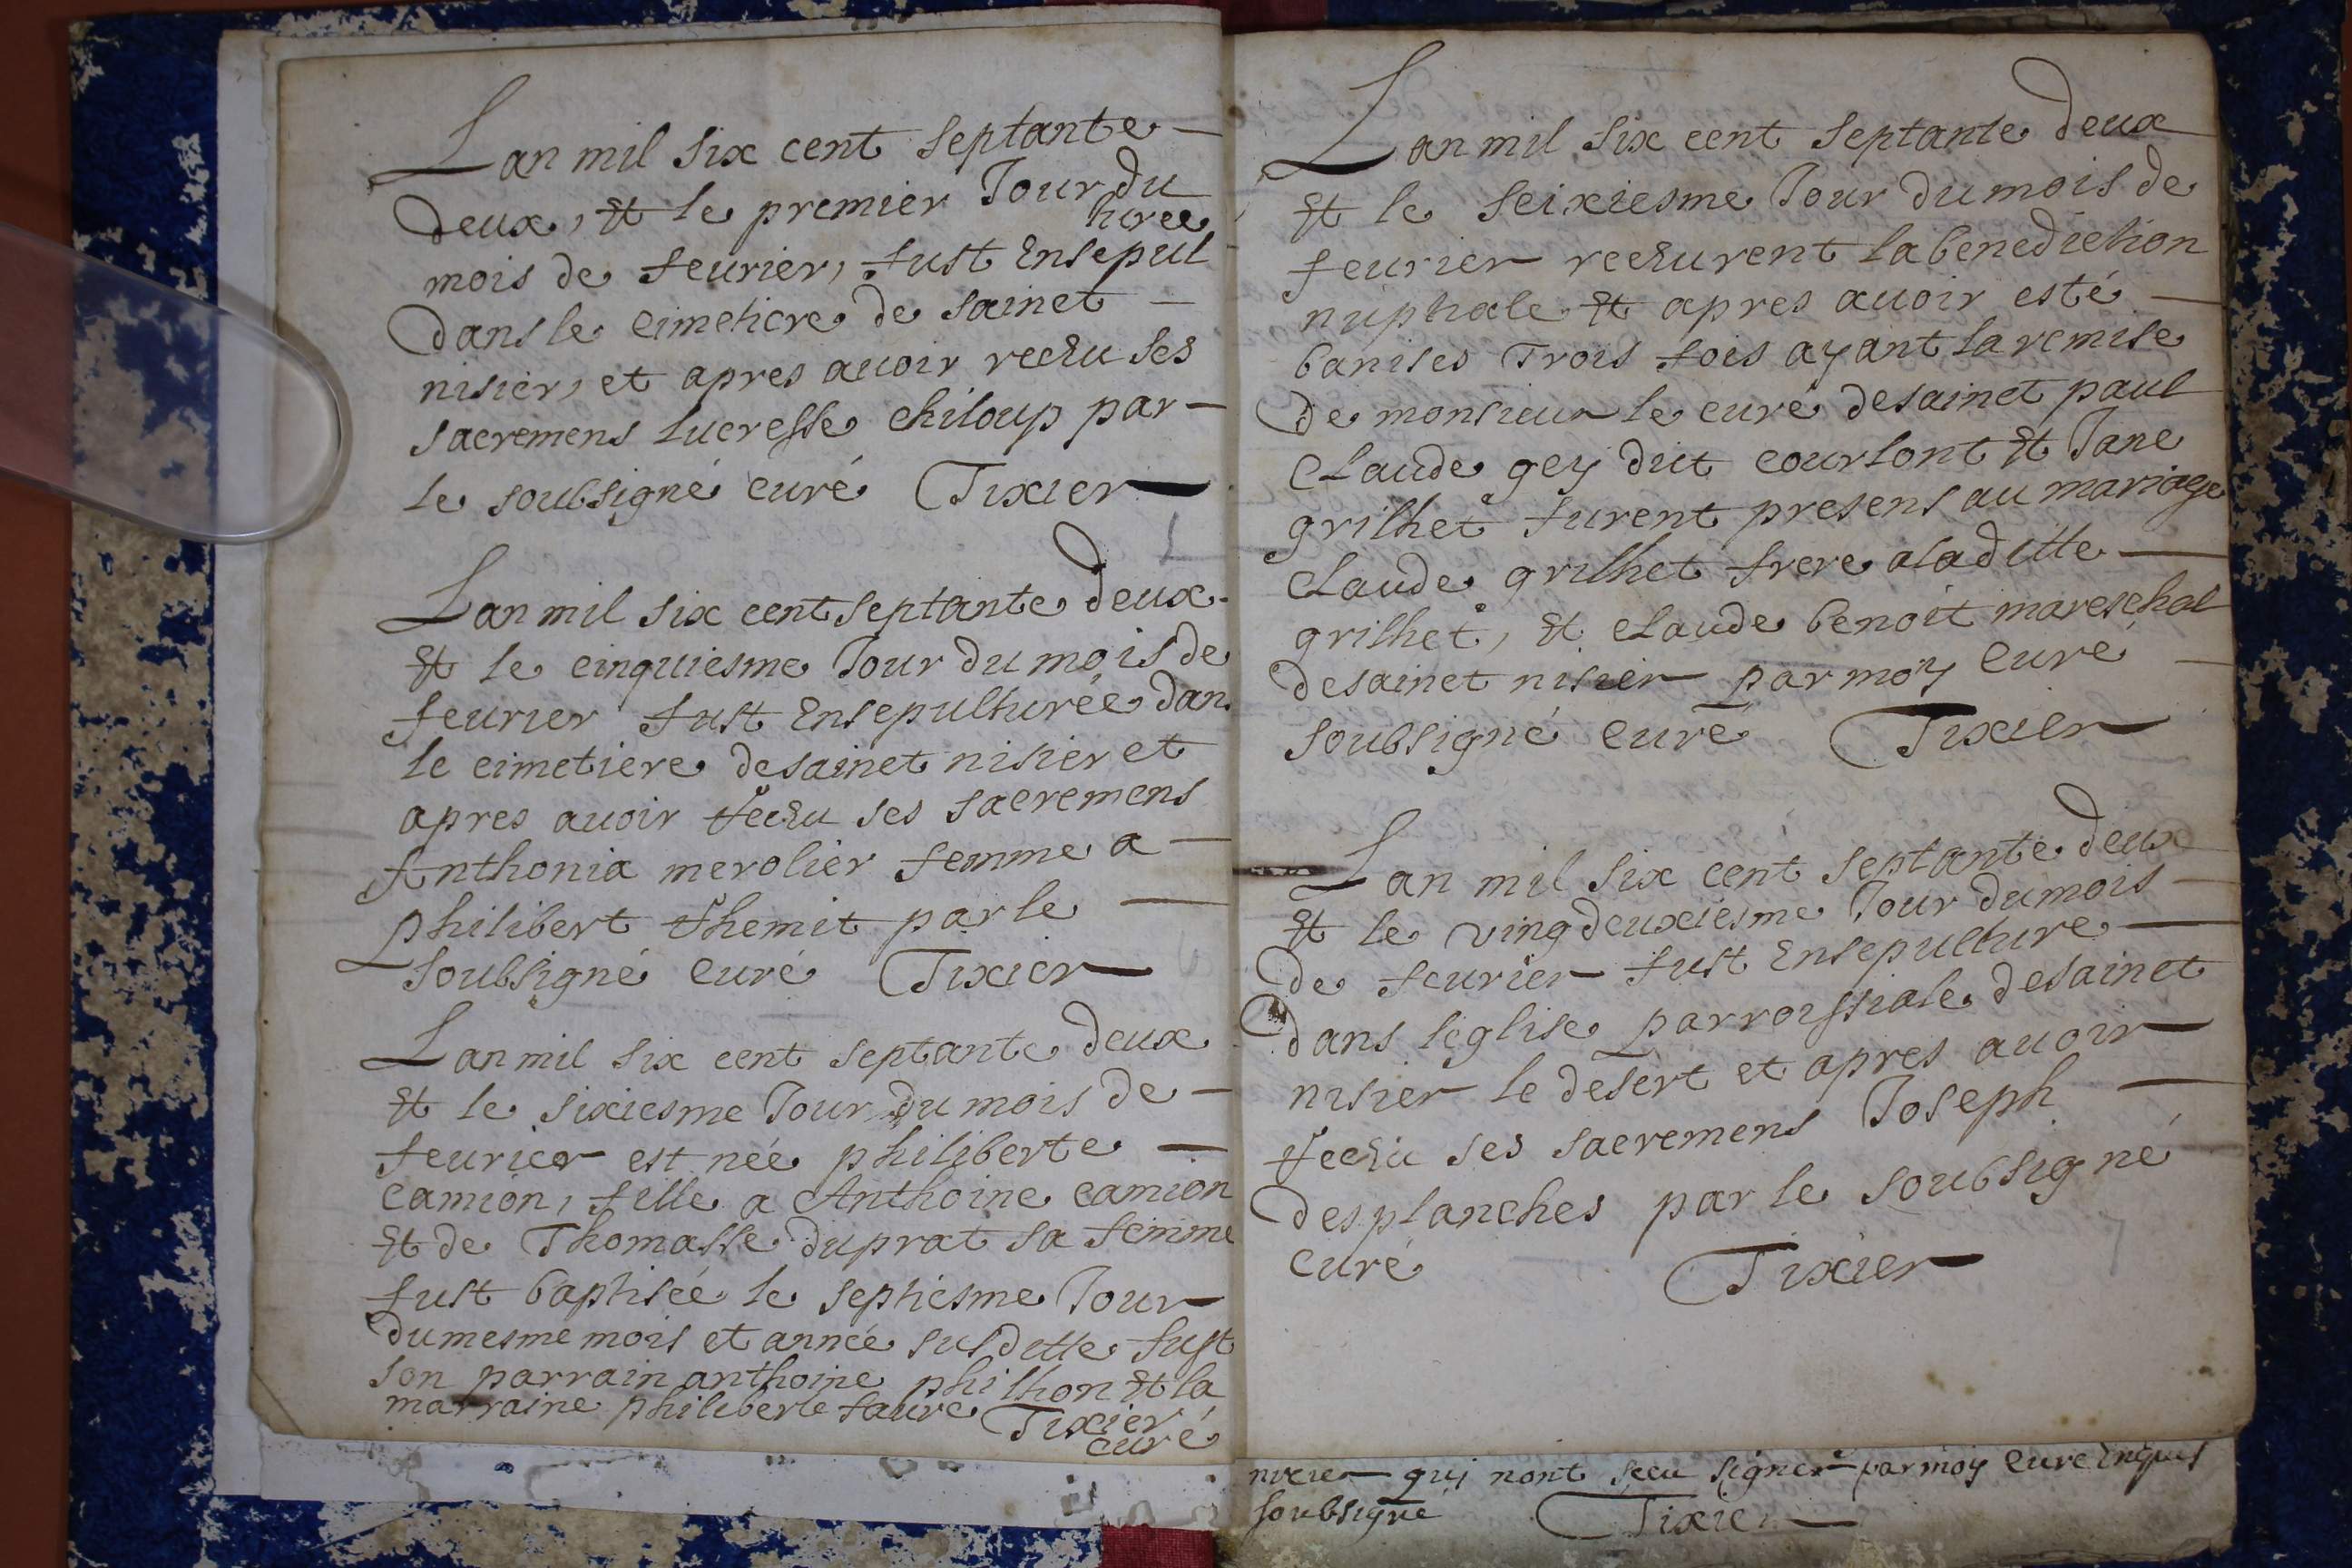 Lan mil six cent septante
deux, Et le premier Jour du
mois de feurier, fust Ensepul
turee
dans le cimetiere de sainct
nisier, et apres auoir reccu ses
sacremens lucresse chiloup par
le soubsigné curé Tixier
Lan mil six cent septante deux
Et le cinquiesme Jour du mois de
feurier fust Ensepulturée dans
le cimetiere de sainct nisier et
apres auoir reccu ses sacremens
Anthonia merolier femme a
philibert themit par le
soubsigné curé Tixier
Lan mil six cent septante deux
Et le sixiesme Jour du mois de
feurier est née philiberte
camion, fille a Anthoine camion
Et de Thomasse duprat sa femme
fust baptisée le septiesme Jour
du mesme mois et année susditte fust
son parrain anthoine philhon Et la
marraine philiberte faure Tixier
curé
Lan mil six cent septante deux
Et le seixiesme Jour du mois de
feurier reccurent la benediction
nuptiale Et apres auoir esté
banises Trois fois ayant la remise
de monsieur le curé de sainct paul
Claude gey dit courlont Et Jane
grilhet furent presens au mariage
Claude grilhet frere a la ditte
grilhet, Et claude benoit mareschal
de sainct nisier par moy Curé
soubsigné curé Tixier
Lan mil six cent septante deux
Et le vingdeuxiesme Jour du mois
de feurier fust Ensepulture
dans leglise parroissiale de sainct
nisier le desert et apres auoir
reccu ses sacremens Joseph
desplanches par le soubsigné
curé Tixier
nixier quj nont sceu signer par moy curé
soubsigné Tixier